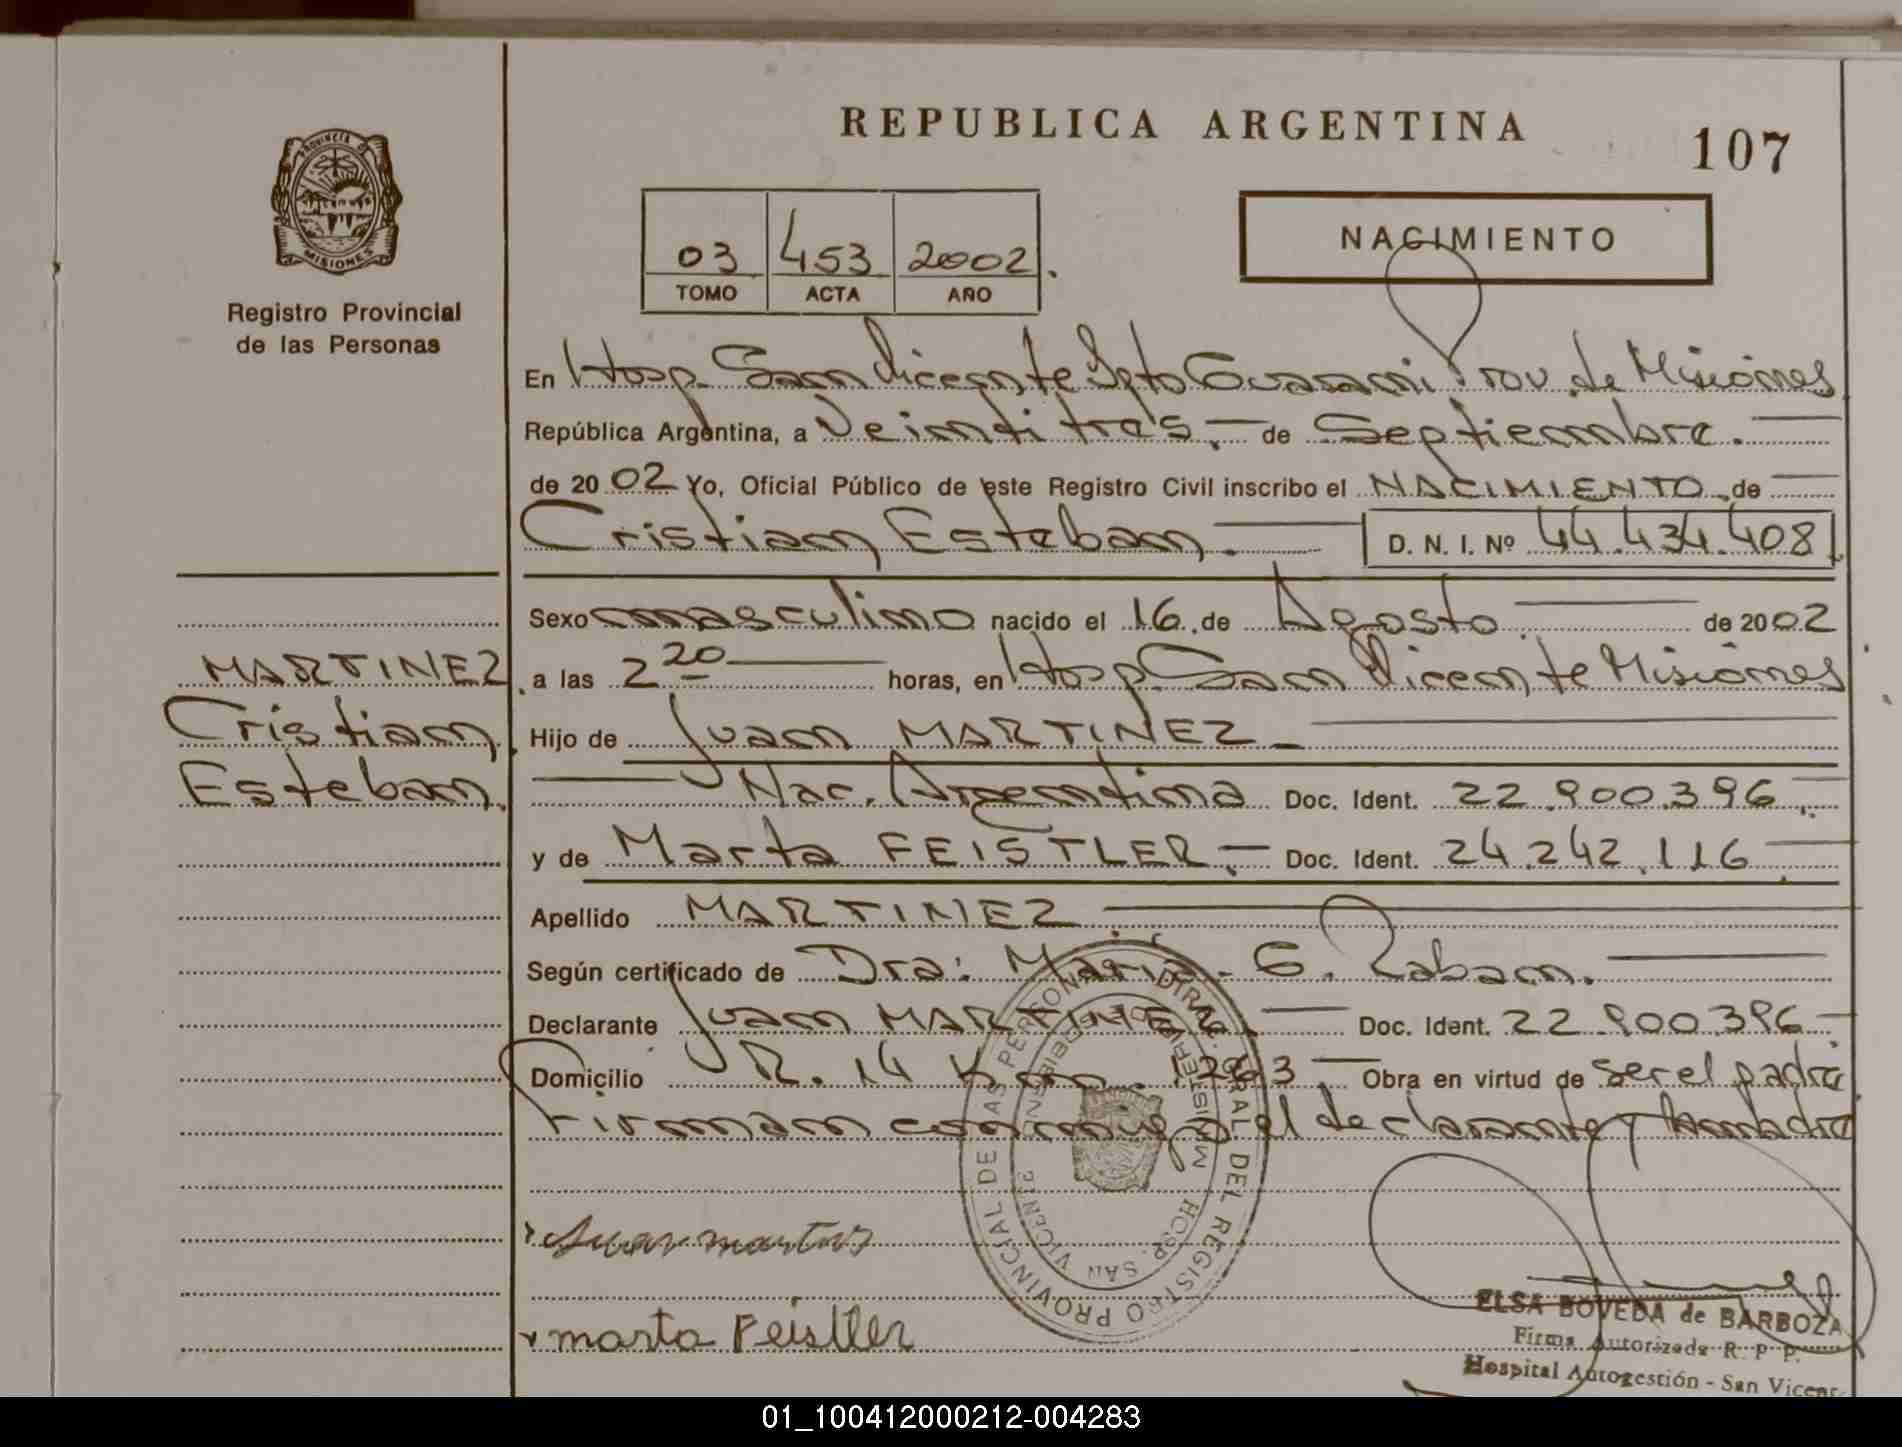 REPUBLICA ARGENTINA
107
PROVINCIA DE MISIONES
Registro Provincial
de las Personas
03 453 2002.
TOMO ACTA AÑO
NACIMIENTO
En Hosp. San Vicente Dpto Guarani Prov. de Misiones
República Argentina, a Veintitrés.- de Septiembre.
de 2002 Yo, Oficial Público de este Registro Civil inscribo el NACIMIENTO de
Cristian Esteban. D. N. I. Nº 44.434.408
Sexo masculino nacido el 16 de Agosto de 2002
a las 2 20 horas, en Hosp. San Vicente Misiones
MARTINEZ
Cristian
Esteban.
Hijo de Juan MARTINEZ
Nac. Argentina Doc. Ident. 22.900.396
y de Marta FEISTLER.- Doc. Ident. 24.242.116
Apellido MARTINEZ
Según certificado de Dra: Maria. G. Zaban.
Declarante Juan MARTINEZ. Doc. Ident. 22.900.396
Domicilio R. 14 Km. 1263 Obra en virtud de ser el padre
Firman conmigo el declarante y la madre
DIREC. GRAL DEL REGISTRO PROVINCIAL DE LAS PERSONAS
MINISTERIO DE GOBIERNO
HOSP. SAN VICENTE
marta Feistler
ELSA BOVEDA de BARBOZA
Firma Autorizada R. P. P.
Hospital Autogestión - San Vicente
01_100412000212-004283